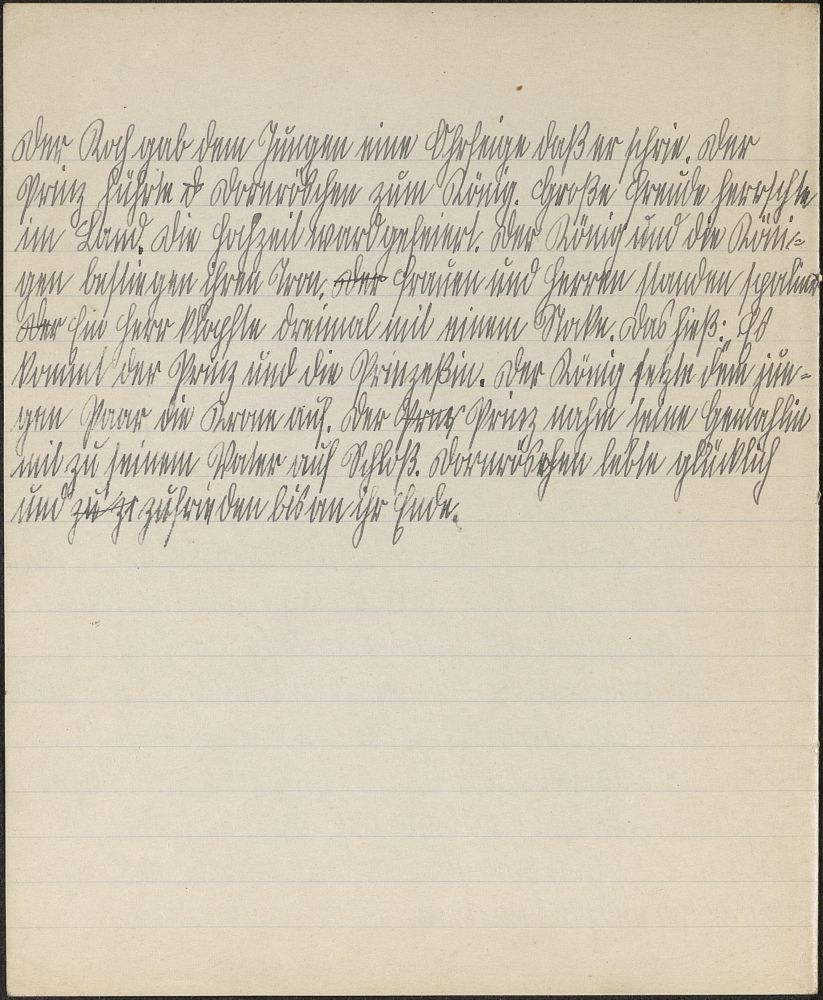 Der Koch gab dem Jungen eine Ohrfeige daß er schrie. Der
Prinz führte D Dornröschen zum König. Große Freude herrschte
im Land. Die Hochzeit ward gefeiert. Der König und die Köni-
gen bestiegen ihren Tron. Der Frauen und Herren standen spalier
Der Ein Herr klopfte dreimal mit einem Stoke. Das hieß: Es
kommt der Prinz und die Prinzeßin. Der König setzte dem jun-
gen Paar die Krone auf. Der Prnz Prinz nahm seine Gemahlin
mit zu seinem Vater auf Schloß. Dornröschen lebte glücklich
und zu zufrieden bis an ihr Ende.